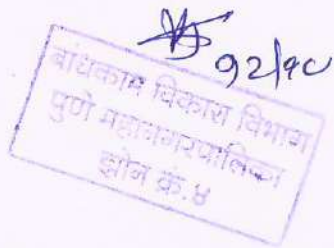 १२/१८
बांधकाम विकास विभाग
पुणे महानगरपालिका
झोन क्रं. ४